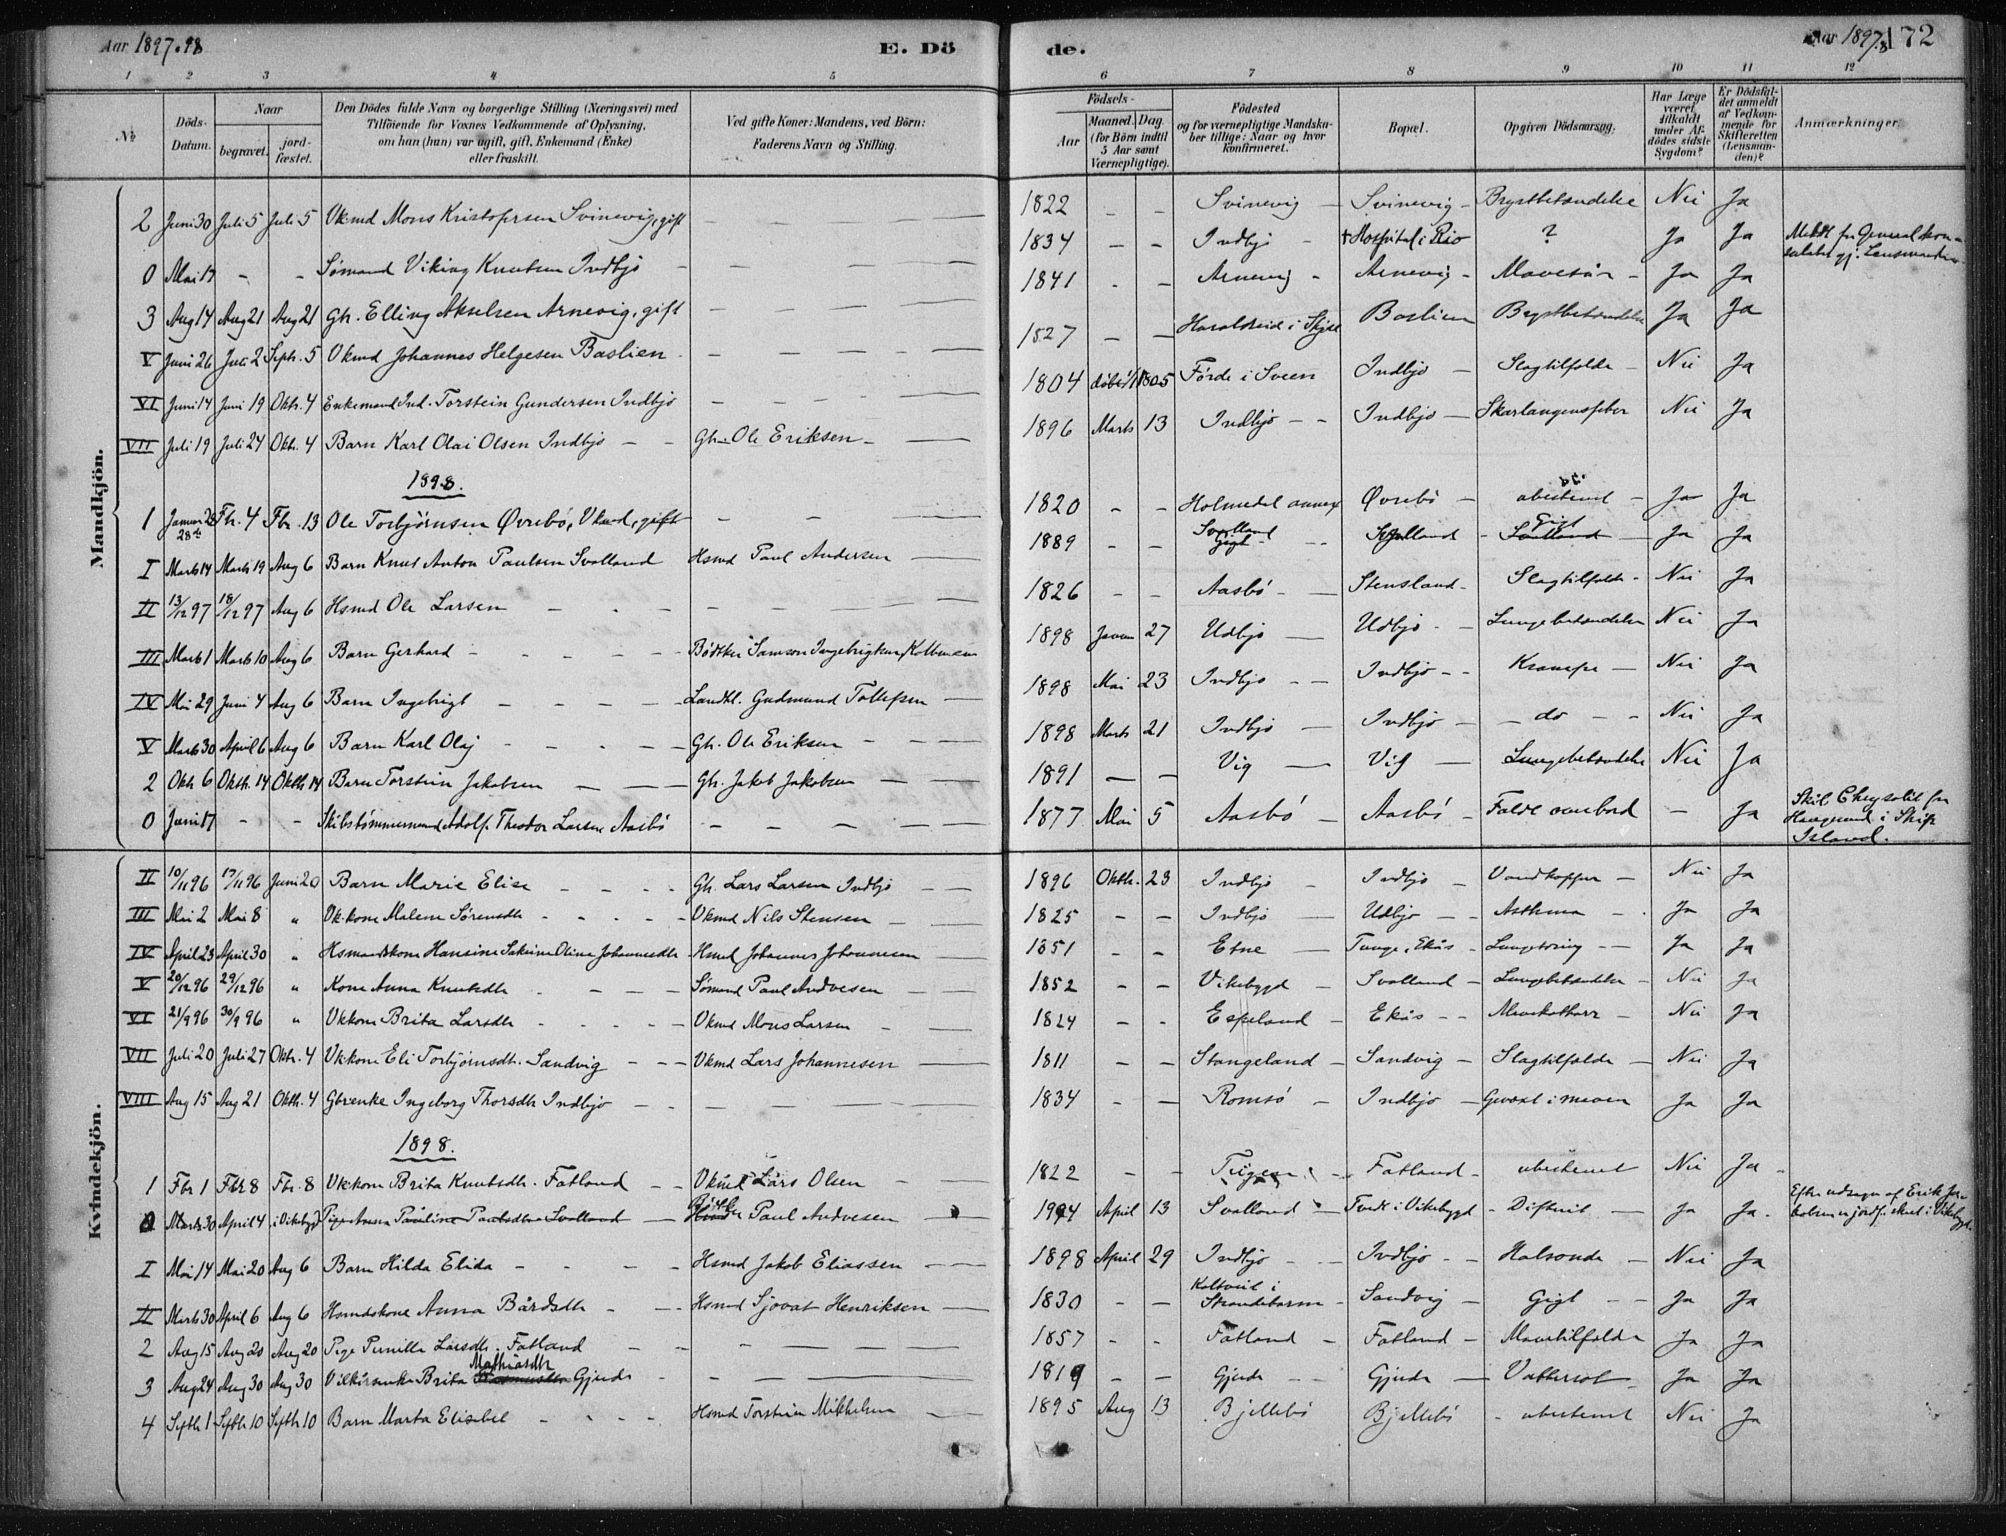 Aar 1897.98
E. Dö
de.
Aar 1897.8 172
1 2 3 4 5 6 7 8 9 10 11 12
No
Döds-Datum.
Naar
begravet.
jord-fæstet.
Den Dödes fulde Navn og borgerlige Stilling (Næringsvei) med
Tilföiende for Voxnes Vedkommende af Oplysning,
om han (hun) var ugift, gift, Enkemand (Enke)
eller fraskilt.
Ved gifte Koner: Mandens, ved Börn:
Faderens Navn og Stilling.
Födsels-
Aar
Maaned. Dag.
(for Börn indtil
5 Aar samt
Værnepligtige).
Födested
og for værnepligtige Mandska-
ber tillige: Naar og hvor
konfirmeret.
Bopæl.
Opgiven Dödsaarsag.
Har Læge
været
tilkaldt
under Af-
dödes sidste
Sygdom?
Er Dödsfal-
det anmeldt
af Vedkom-
mende for
Skifteretten
(Lensman-
den)?
Anmærkninger.
Mandkjön.
2 Juni 30 Juli 5 Juli 5 Vkmd Mons Kristofersen Svinevig, gift 1822 Svinevig Svinevig Brystbetændelse Nei Ja
0 Mai 17 Sømand Viking Knutsen Indbjo 1834 Indbjo † Hospital i Rio ? Ja Ja
3 Aug 14 Aug 21 Aug 21 Gbr. Elling Akselsen Arnevig, gift 1841 Arnevig Arnevig Mavesår Ja Ja
V Juni 26 Juli 2 Septr. 5 Vkmd Johannes Helgesen Baslien 1827 Baslien Brystbetændelse Ja Ja
VI Juni 14 Juni 19 Oktr. 4 Enkemand Ind. Torstein Gundersen Indbjo 1804 1805 Förde i Sveen Indbjo Slagtilfælde Nei Ja
VII Juli 19 Juli 24 Oktr. 4 Barn Karl Olai Olsen Indbjo Gbr. Ole Eriksen 1896 Marts 13 Indbjo Indbjo Skarlagensfeber Nei Ja
1898.
1 Januar 28 Fbr. 4 Fbr. 13 Ole Torbjørnsen Øvrebø, Vkmd, gift 1820 Holmedal annex Øvrebö ubestemt Ja Ja
I Marts 14 Marts 19 Aug 6 Barn Knut Anton Paulsen Svolland Hsmd Paul Andersen 1889 Svolland Svolland Gigt Ja Ja
II 13/12 97 18/12 97 Aug 6 Hsmd Ole Larsen 1826 Aasbö Stensland Slagtilfælde Nei Ja
III Marts 1 Marts 10 Aug 6 Barn Gerhard Bødtker Samson Ingebrigtsen 1898 Januar 27 Udbjo Udbjo Lungebetændelse Nei Ja
IV Mai 29 Juni 4 Aug 6 Barn Ingebrigt Landhl. Gudmund Tollefsen 1898 Mai 23 Indbjo Indbjo Krampe Nei Ja
V Marts 30 April 6 Aug 6 Barn Karl Olaj Gbr. Ole Eriksen 1898 Marts 21 Indbjo Indbjo do Nei Ja
2 Oktr 6 Oktbr. 14 Oktbr 14 Barn Torstein Jakobsen Gbr. Jakob Jakobsen 1891 Vig Vig Lungebetændelse Nei Ja
0 Juni 17 Skibstømmermand Adolf Theodor Larsen Aasbö 1877 Mai 5 Aasbö Aasbö Faldt overbord Ja Skib Chrysolit fra
Haugesund i Ship
Island.
Kvindekjön.
II 10/11 96 17/11 96 Juni 20 Barn Marie Elise Gbr. Lars Larsen Indbjo 1896 Oktbr. 23 Indbjo Indbjo Vandkopper Nei Ja
III Mai 2 Mai 8 " Vkkone Malene Sørensdtr Vkmd Nils Stensen 1825 Indbjo Udbjo Asthma Ja Ja
IV April 23 April 30 " Hsmandskone Hansine Sakrine Oline Johannesdtr Hsmd Johannes Johannesen 1851 Etne Tunge, Ekås Lungetæring Ja Ja
V 20/12 96 29/12 96 " Kone Anna Knutsdtr Sømand Paul Andresen 1852 Vikebygd Svolland Lungebetændelse Nei Ja
VI 21/9 96 30/9 96 " Vkkone Brita Larsdtr Vkmd Mons Larsen 1824 Espeland Ekås Mavekatharr Nei Ja
VII Juli 20 Juli 27 Oktr. 4 Vkkone Eli Torbjørnsdtr. Sandvig Vkmd Lars Johannesen 1811 Stangeland Sandvig Slagtilfælde Nei Ja
VIII Aug 15 Aug 21 Oktb. 4 Gbrenke Ingeborg Thorsdtr Indbjo 1834 Romsö Indbjo Gevæxt i maven Ja Ja
1898.
1 Fbr 1 Fbr 8 Fbr. 8 Vkkone Brita Knutsdtr. Fatland Vkmd Lars Olsen 1822 Fatland ubestemt Nei Ja
0 Marts 30 April 4 i Vikebygd Pige Anna Pauline Paulsdtr Svolland Paul Andresen April 13 Svolland Tveit i Vikebygd Difterit Ja Ja
I Mai 14 Mai 20 Aug 6 Barn Hilda Elida Hsmd Jakob Eliassen 1898 April 29 Indbjo Indbjo Halsonde Nei Ja
II Marts 30 April 6 Aug 6 Hsmdskone Anna Bårdsdtr Hsmd Sjovat Henriksen 1830 Strandebarm Sandvig Gigt Ja Ja
2 Aug 15 Aug 20 Aug 20 Pige Pernille Larsdtr. Fatland 1857 Fatland Fatland Mavetilfælde Ja Ja
3 Aug 24 Aug 30 Aug 30 Vilkårsenke Brita Mathiasdtr Gjerde 1819 Gjerde Gjerde Vattersot Ja Ja
4 Septbr 1 Septbr 10 Septbr 10 Barn Marta Elisabet Hsmd Torstein Mikkelsen 1895 Aug 13 Bjellebö Bjellebö ubestemt Nei Ja